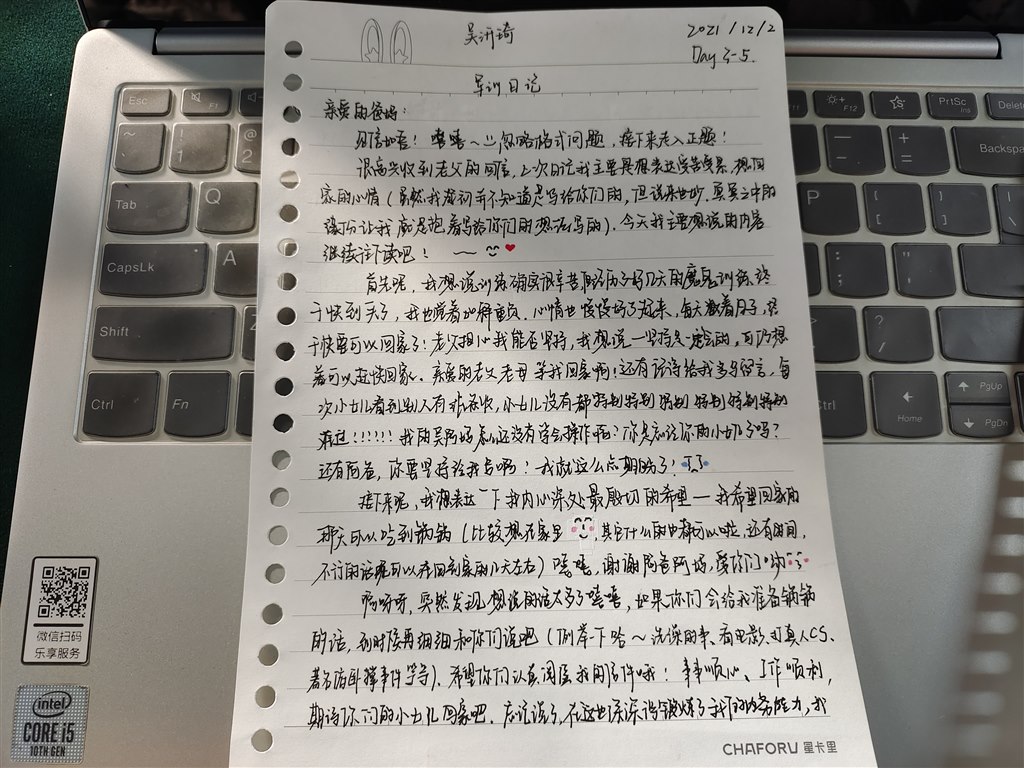 吴沂琦
2021/12/2
Day 3-5.
军训日记
亲爱的爸妈:
见信如吾!嘻嘻~忽略格式问题,接下来走入正题!
很高兴收到老父的回信,上次日记我主要是想表达受苦受累、想回
家的心情(虽然我写到并不知道是写给你们的,但说来也妙,冥冥之中的
让我就是抱着写给你们的想法写的)。今天我主要想说的内容
继续往下读吧!
首先呢,我想说训练确实很辛苦,但经历了好几天的魔鬼训练,终
于快到头了,我也觉着如释重负、心情也慢慢好了起来,每天数着日子,终
于快要可以回家了!老父担心我能否坚持,我想说一坚持是一定会的,可仍想
着可以赶快回家、亲爱的老父老母等我回家啊!还有请给我多多留言,每
次小女儿看到别人有张张,小女儿没有都特别特别特别特别特别特别
难过!!!!!!我的吴阿妈怎么还没有学会操作啊?你是忘记你的小女儿了吗?
还有阿爸,你要坚持给我写啊!我就这么点期盼了!
接下来呢,我想表达一下我内心深处最殷切的希望一我希望回家的
那天可以吃到锅锅(比较想在家里,其它什么的也都可以啦,还有时间,
不行的话呢可以在回到家的几天左右)嘻嘻,谢谢阿爸阿妈,爱你们哟
啊呀呀,突然发现想说的话太多了嘻嘻,如果你们会给我准备锅锅
的话,到时候再细细和你们说吧(例举一下哈~洗澡的事、看电影、打真人CS、
著名防 事件等等)、希望你们认真阅读我的信件哦!事事顺心、工作顺利,
期待你们的小女儿回家吧、应说说了,在这也深深锻炼了我的内务能力,我
CHAFORU 星卡里
Esc
F1
F12
PrtSc
Delete
Ins
Backspa
Tab
Q
P
CapsLk
A
Shift
Z
Ctrl
Fn
Ctrl
Home
PgUp
PgDn
微信扫码
乐享服务
intel
CORE i5
10TH GEN